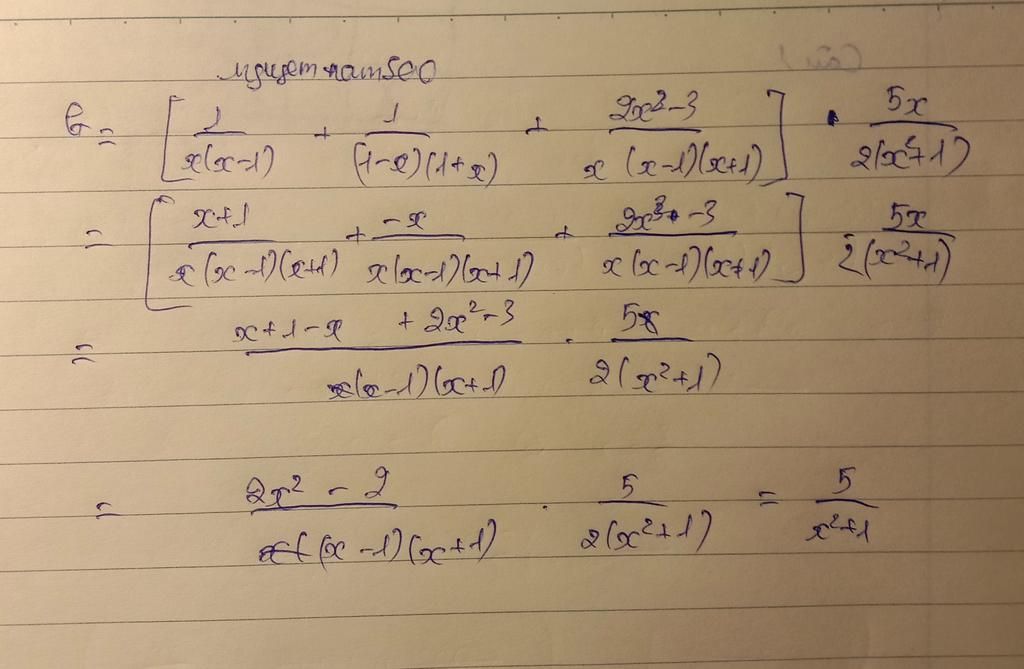 nguyetnam500
G = [ 1/(x(x-1)) + 1/((1-x)(1+x)) + (2x²-3)/(x(x-1)(x+1)) ] · 5x/(2(x²+1))
= [ (x+1)/(x(x-1)(x+1)) + (-x)/(x(x-1)(x+1)) + (2x²-3)/(x(x-1)(x+1)) ] 5x/(2(x²+1))
= (x+1-x+2x²-3)/(x(x-1)(x+1)) · 5x/(2(x²+1))
= (2x²-2)/((x-1)(x+1)) · 5/(2(x²+1)) = 5/(x²+1)